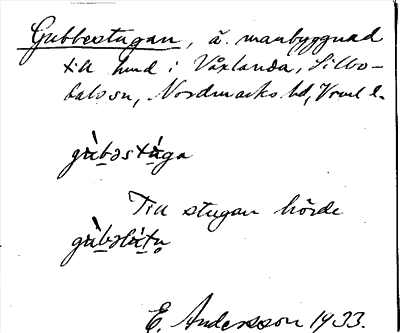 Gubbestugan, ä. manbyggnad
till hmd i Växlanda, Silbo-
dals sn, Nordmarks hd, Vrml l.
gùbəstúga
Till stugan hörde
gùbəlútn̥
E. Andersson 1933.